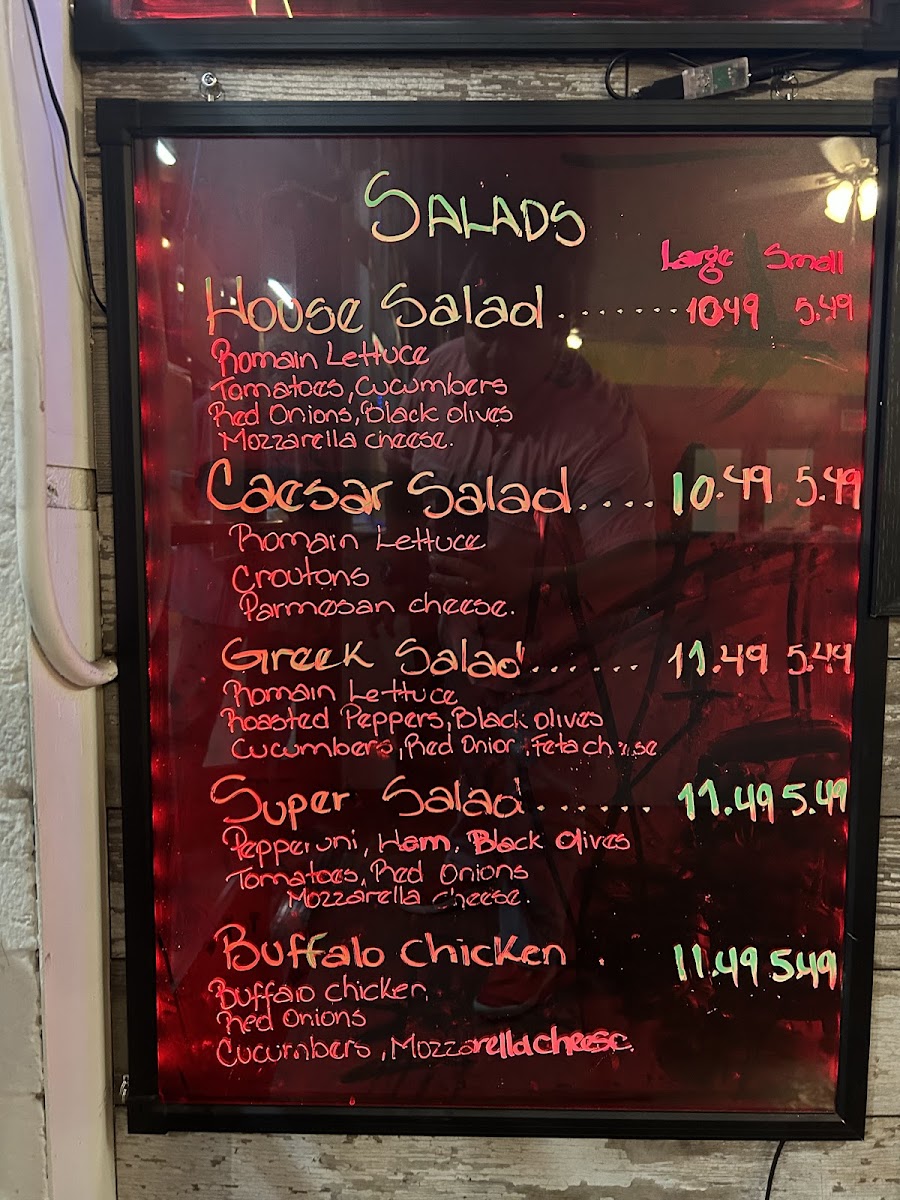 SALADS
Large Small
House Salad ....... 1049 5.49
Romain Lettuce
Tomatoes, Cucumbers
Red Onions, Black olives
Mozzarella cheese.
Caesar Salad.... 10.49 5.49
Romain Lettuce
Croutons
Parmesan cheese.
Greek Salad...... 11.49 5.49
Romain Lettuce
Roasted Peppers, Black olives
Cucumbers, Red Onion, Feta cheese
Super Salad...... 11.49 5.49
Pepperoni, Ham, Black Olives
Tomatoes, Red Onions
Mozzarella cheese.
Buffalo Chicken . 11.49 5.49
Buffalo chicken
Red Onions
Cucumbers, Mozzarella cheese.